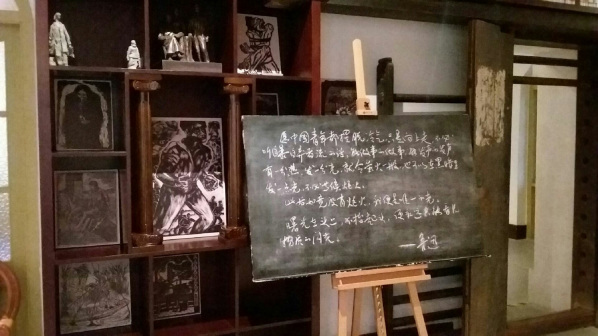 愿中国青年都摆脱冷气，只是向上走，不必
听自暴自弃者流的话，能做事的做事，能发声的发声
有一分热，发一分光，就令萤火一般，也可以在黑暗里
发一点光，不必等候炬火。
此后如竟没有炬火，我便是唯一的光。
曙光在头上，不抬起头，便永远只能看见
物质的闪光。
——鲁迅